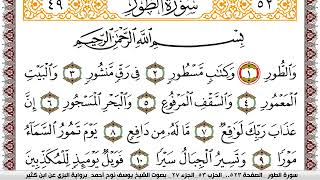 ٤٩ سُورَةُ الطُّورِ ٥٢
بِسْمِ اللَّهِ الرَّحْمَٰنِ الرَّحِيمِ
وَالطُّورِ ١ وَكِتَابٍ مَسْطُورٍ ٢ فِي رَقٍّ مَنْشُورٍ ٣ وَالْبَيْتِ
الْمَعْمُورِ ٤ وَالسَّقْفِ الْمَرْفُوعِ ٥ وَالْبَحْرِ الْمَسْجُورِ ٦ إِنَّ
عَذَابَ رَبِّكَ لَوَاقِعٌ ٧ مَا لَهُ مِنْ دَافِعٍ ٨ يَوْمَ تَمُورُ السَّمَاءُ
مَوْرًا ٩ وَتَسِيرُ الْجِبَالُ سَيْرًا ١٠ فَوَيْلٌ يَوْمَئِذٍ لِلْمُكَذِّبِينَ
سورة الطور الصفحة ٥٢٣ الحزب ٥٣ الجزء ٢٧ بصوت الشيخ يوسف نوح أحمد برواية البزي عن ابن كثير